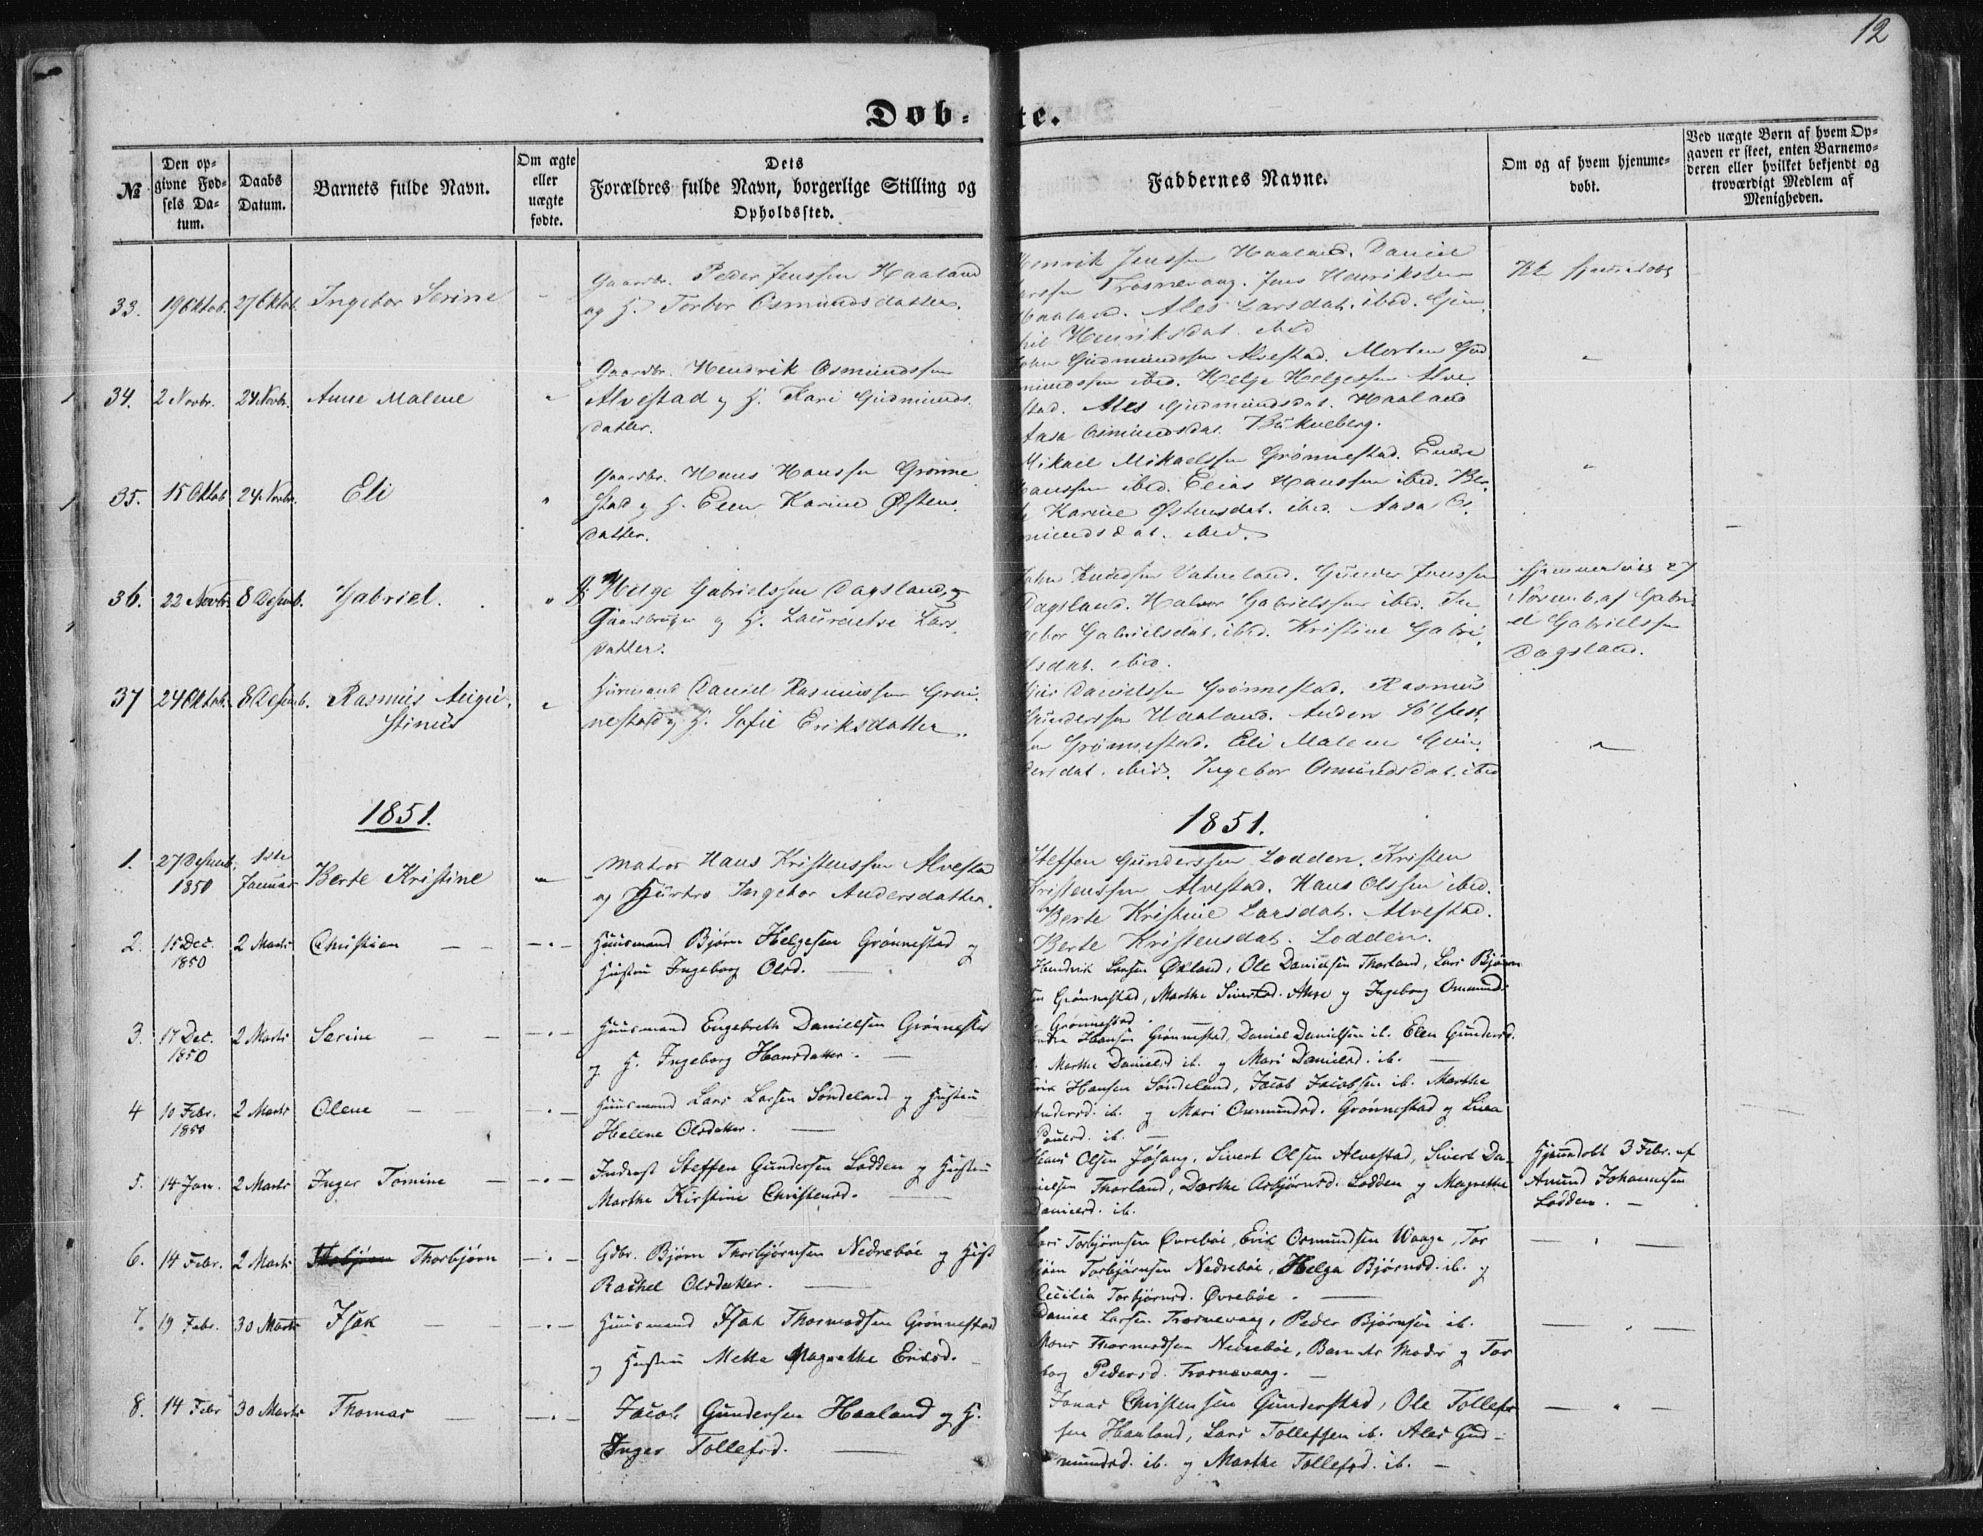 12
Døb- te.
№
Den op-
givne Fød-
sels Da-
tum.
Daabs
Datum.
Barnets fulde Navn.
Om ægte
eller
uægte
fødte.
Dets
Forældres fulde Navn, borgerlige Stilling og
Opholdssted.
Faddernes Navne.
Om og af hvem hjemme-
døbt.
Ved uægte Børn af hvem Op-
gaven er skeet, enten Barnemo-
deren eller hvilket bekjendt og
troværdigt Medlem af
Menigheden.
33. 19 Oktob. 27 Oktob. Ingebor Serine
Gaardbr. Peder Jenssen Haaland
og H. Torbor Osmundsdatter.
Henrik Jenssen Haaland. Daniel
Larssen Trosnevaag. Jens Henriksen
Haaland. Ales Larsdat. ibid.
Henriksdat. ibid
34. 2 Novbr. 24 Novbr. Anne Malene
Gaardbr. Hendrik Osmundssen
Alvestad og H. Kari Gudmunds
datter.
John Gudmundssen Alvestad. Morten Gud
mundssen ibid. Helje Helgessen Alve
stad. Ales Gudmundsdat. Haaland
Aasa Osmundsdat. Bukveberg.
35. 15 Oktob 24 Novbr. Eli
Gaardbr. Hans Hanssen Grønne
stad og H. Elen Karine Østens
datter.
Mikael Mikaelssen Grønnestad. Endre
Hanssen ibid. Elias Hanssen ibid. Ber
Karine Østensdat. ibid. Aasa Os
mundsdat. ibid.
36. 22 Novbr 8 Desemb. Gabriel.
Helge Gabrielssen Dagsland, og
Gaardbruger og H. Laurentse Lars
datter.
John Knudssen Vatneland. Gunder Jenssen
Dagsland. Halvor Gabrielssen ibid. In
gebor Gabrielsdat. ibid. Kristine Gabri
elsdat. ibid.
Hjemmedøbt 27
Novemb. af Gabri
el Gabrielssen
Dagsland.
37 24 Oktob. 8 Desemb. Rasmus Augu
stinus
Husmand Daniel Rasmussen Grøn
nestad og H. Sofie Eriksdatter.
Danielssen Grønnestad. Rasmus
Gunderssen Haaland.
Grønnestad. Eli Malene Gun
dersdat. ibid. Ingebor Osmundsdat. ibid
1851.
1851.
1. 27 Desemb. 1ste
1850 Januar Berte Kristine
Matros Hans Kristenssen Alvestad
og Hustro Ingebor Andersdatter.
Steffen Gunderssen Lodden. Kristen
Kristenssen Alvestad. Hans Olssen ibid.
Berte Kristine Larsdat. Alvestad.
Berte Kristensdat. Lodden.
2. 15 Dec. 2 Marts Christian
1850
Huusmand Bjørn Helgesen Grønnestad og
Hustru Ingeborg Olsd.
Hendrik Larsen Økland, Ole Danielsen Thorland, Lars Bjørn
sen Grønnestad, Marthe Sivertsd. Akse og Ingeborg Osmunds
Grønnestad.
3. 17 Dec. 2 Marts Serine
1850
Huusmand Engebreth Danielsen Grønnestad
og H. Ingeborg Hansdatter.
Endre Hansen Grønnestad, Daniel Danielsen ib. Elen Gundersd.
Marthe Danielsd ib. og Mari Danielsd. ib.
4 10 Febr. 2 Marts Olene
1850
Huusmand Lars Larsen Søndeland og Hustru
Helene Olsdatter.
Erik Hansen Søndeland, Jacob Jacobsen ib. Marthe
Andersd. ib. og Mari Osmundsd. Grønnestad og Lisa
Poulsd. ib.
5. 14 Jan. 2 Marts Inger Tomine
Inderst Steffen Gundersen Lodden og Hustru
Marthe Kirstine Christensd.
Hans Olsen Jøsang, Sivert Olsen Alvestad, Sivert Da
nielsen Thorland, Dorthe Asbjørnsd. Lodden og Magrethe
Danielsd. ib.
Hjemdøbt 3 Febr. af
Amund Johannesen
Lodden.
6. 14 Febr. 2 Marts Thorbjørn
Gdbr. Bjørn Thorbjørnsen Nedrebøe og Hust
Rachel Olsdatter.
Lars Torbjørnsen Øvrebøe, Erik Osmundsen Waage, Tor
bjørn Torbjørnsen Nedrebøe, Helga Bjørnsd. ib. og
Cecilia Torbjørnsd. Øvrebøe.
7. 19 Febr. 30 Marts Isak
Huusmand Isak Thormodsen Grønnestad
og Hustru Mette Magrethe Eriksd.
Daniel Larsen Trosnevaag, Peder Bjørnsen ib.
Mons Thormodsen Nedrebøe, Barnets Moder og Tor
borg Pedersd. Trosnevaag.
8. 14 Febr 30 Marts Thomas
Jacob Gundersen Haaland og H.
Inger Tollefsd.
Jonas Christensen Gunderstad, Ole Tollef
sen Haaland, Lars Tollefsen ib. Ales Gud-
mundsd. ib. og Marthe Tollefsd. ib.